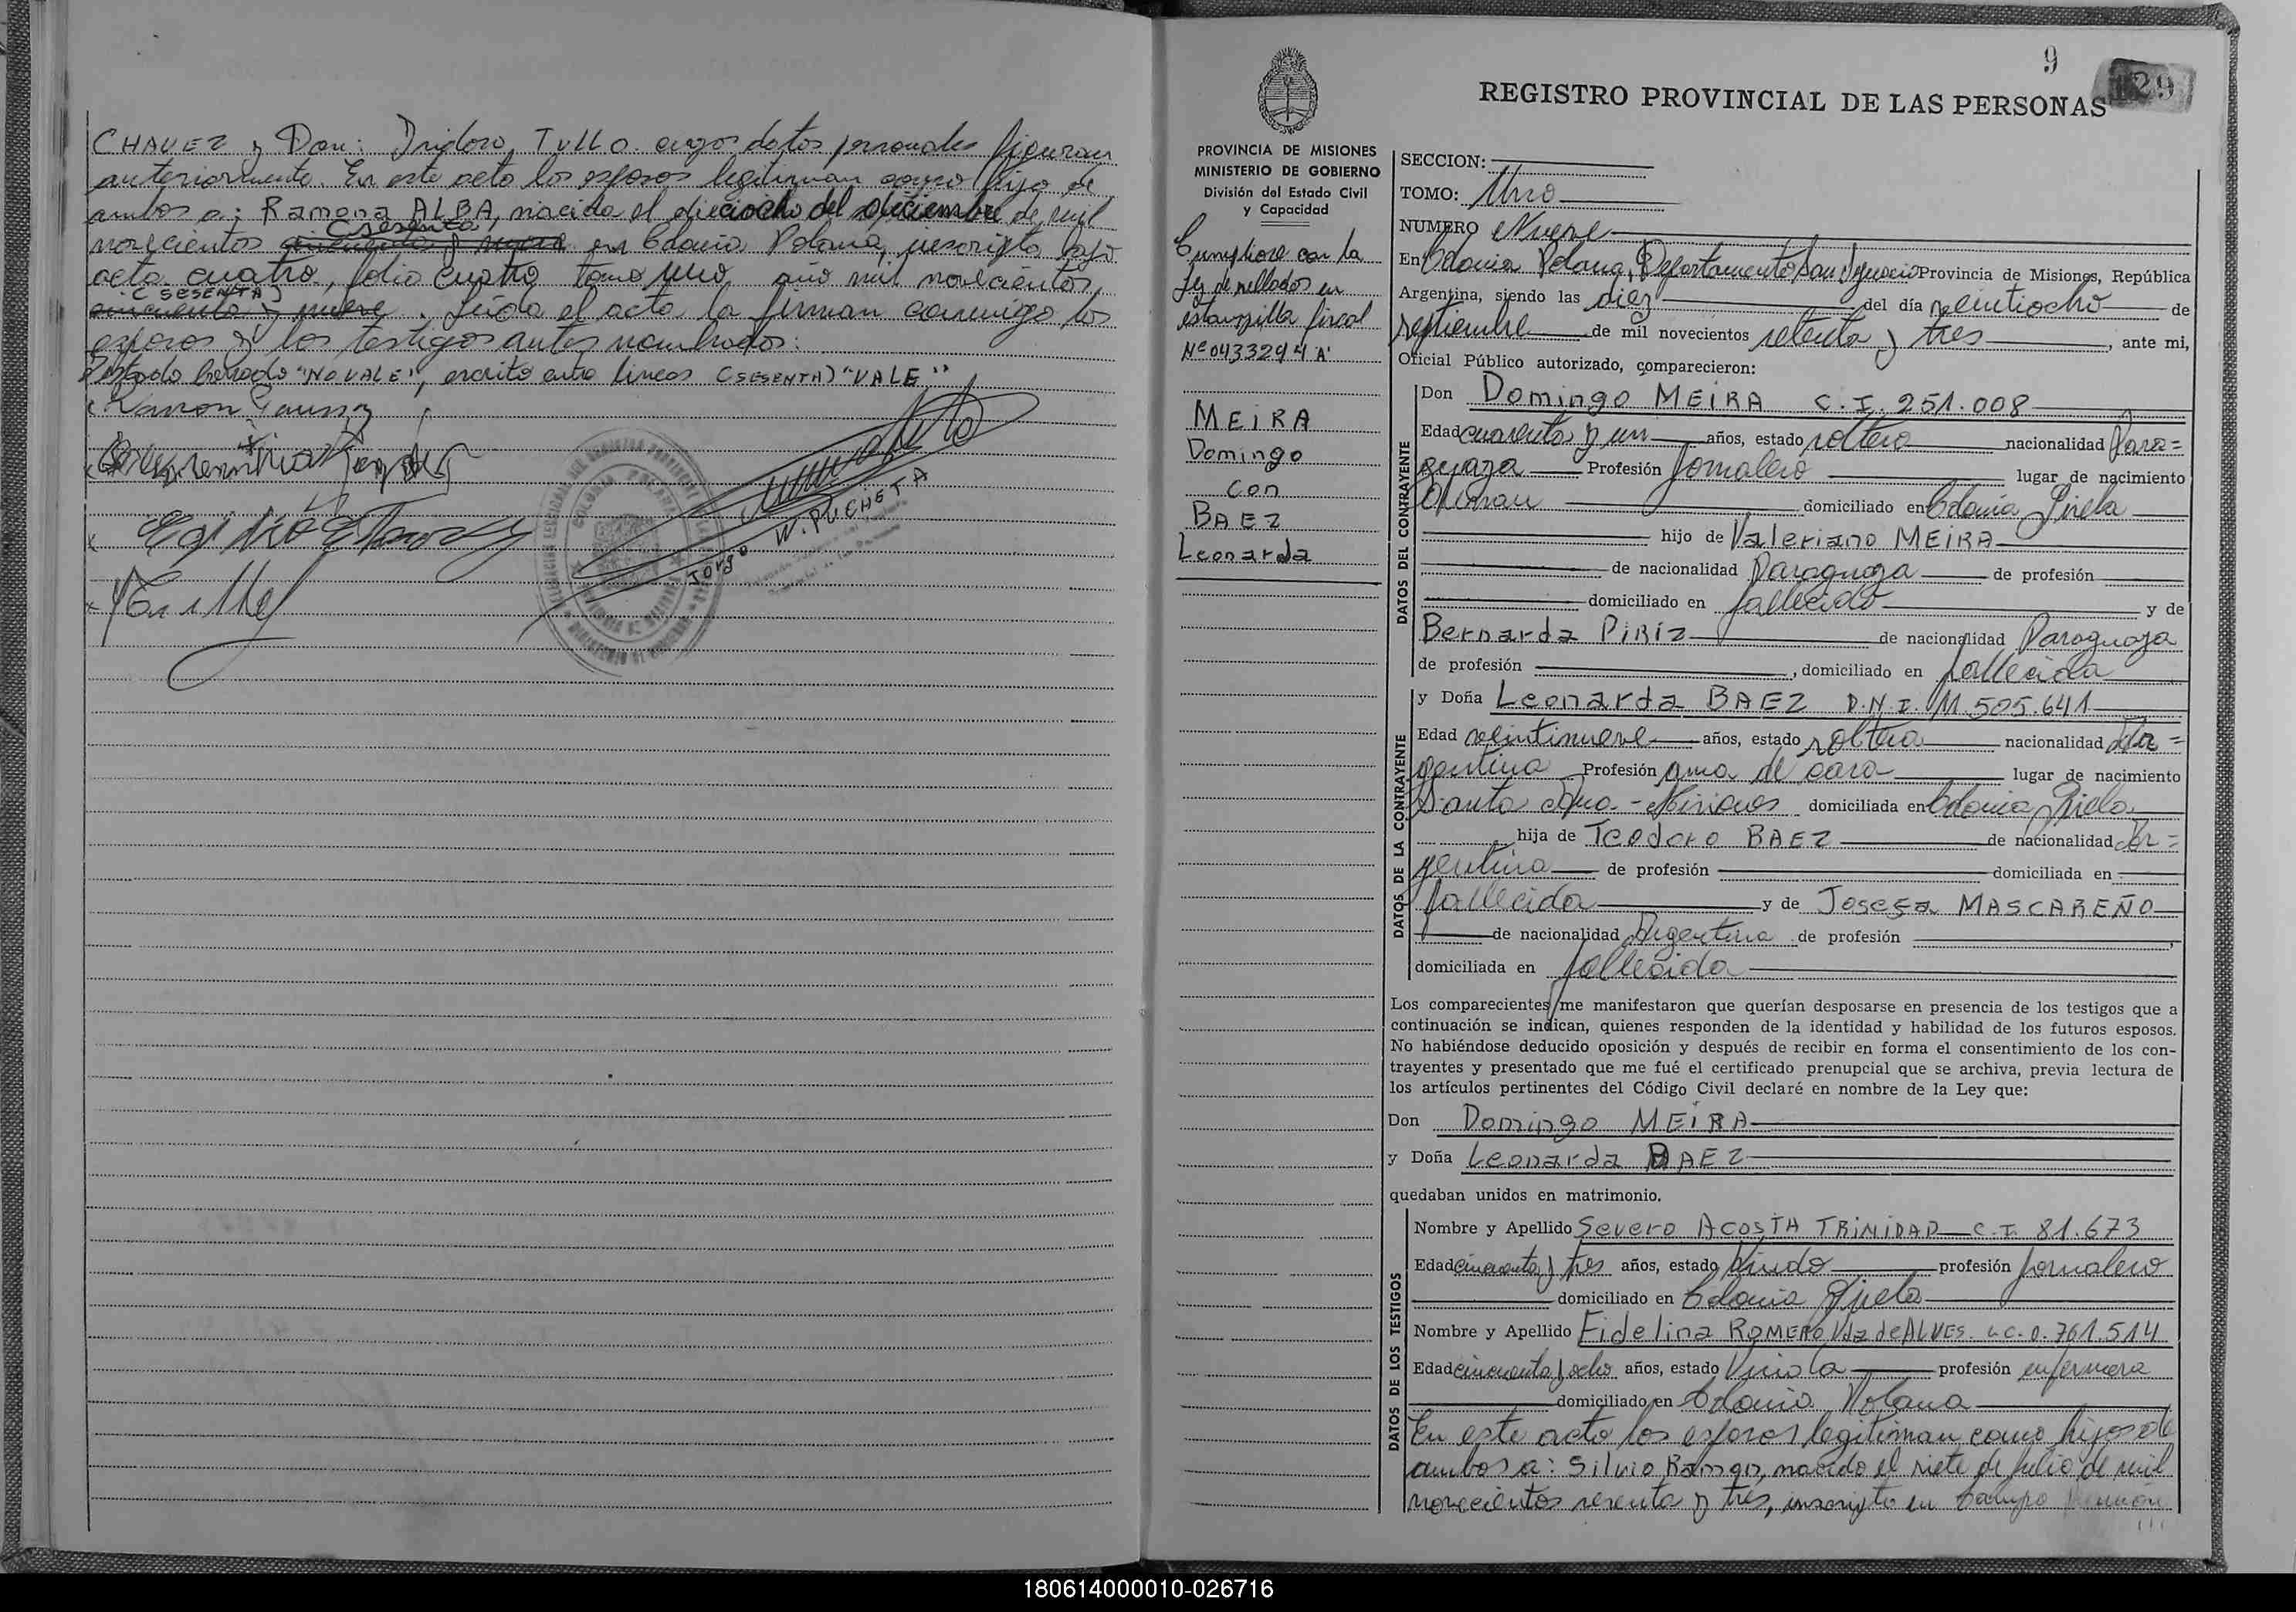 CHAVEZ y Don: Isidoro TULLO cuyos datos personales figuran
anteriormente. En este acto los esposos legitiman como hijo de
ambos a: Ramona ALBA, nacida el dieciocho del diciembre de mil
(sesenta)
novecientos cincuenta y nueve en Colonia Polana, inscripto bajo
acta cuatro, folio cuatro tomo uno, año mil novecientos
(SESENTA)
cincuenta y nueve. Leída el acta la firman conmigo los
esposos y los testigos antes nombrados:
borrado "NO VALE", escrito entre lineas (SESENTA) "VALE"
Ramon
Jorge W. PUCHETA
9
29
REGISTRO PROVINCIAL DE LAS PERSONAS
PROVINCIA DE MISIONES
MINISTERIO DE GOBIERNO
División del Estado Civil
y Capacidad
Cumplióse con la
ley de sellados en
estampilla fiscal
Nº 0433294 A
MEIRA
Domingo
con
BAEZ
Leonarda
SECCION:
TOMO: Uno
NUMERO Nueve
En Colonia Polana, Departamento San Ignacio Provincia de Misiones, República
Argentina, siendo las diez del día veintiocho de
septiembre de mil novecientos setenta y tres, ante mi,
Oficial Público autorizado, comparecieron:
DATOS DEL CONTRAYENTE
Don Domingo MEIRA C.I. 251.008
Edad cuarenta y un años, estado soltero nacionalidad Para=
guaya Profesión Jornalero lugar de nacimiento
domiciliado en Colonia Gisela
hijo de Valeriano MEIRA
de nacionalidad Paraguaya de profesión
domiciliado en fallecido y de
Bernarda PIRIZ de nacionalidad Paraguaya
de profesión , domiciliado en fallecida
DATOS DE LA CONTRAYENTE
y Doña Leonarda BAEZ D.N.I. 11.505.641
Edad veintinueve años, estado soltera nacionalidad Ar=
gentina Profesión ama de casa lugar de nacimiento
Santa Ana - Misiones domiciliada en Colonia Gisela
hija de Teodoro BAEZ de nacionalidad Ar=
gentina de profesión domiciliada en
fallecido y de Josefa MASCAREÑO
de nacionalidad Argentina de profesión
domiciliada en fallecida
Los comparecientes me manifestaron que querían desposarse en presencia de los testigos que a
continuación se indican, quienes responden de la identidad y habilidad de los futuros esposos.
No habiéndose deducido oposición y después de recibir en forma el consentimiento de los con-
trayentes y presentado que me fué el certificado prenupcial que se archiva, previa lectura de
los artículos pertinentes del Código Civil declaré en nombre de la Ley que:
Don Domingo MEIRA
y Doña Leonarda BAEZ
quedaban unidos en matrimonio.
DATOS DE LOS TESTIGOS
Nombre y Apellido Severo ACOSTA TRINIDAD C.I. 81.673
Edad cincuenta y tres años, estado Viudo profesión Jornalero
domiciliado en Colonia Gisela
Nombre y Apellido Fidelina ROMERO Vda de ALVES L.C. 0.761.514
Edad cincuenta y ocho años, estado Viuda profesión enfermera
domiciliado en Colonia Polana
En este acto los esposos legitiman como hijos de
ambos a: Silvio Ramon, nacido el siete de julio de mil
novecientos sesenta y tres, inscripto en Campo
180614000010-026716